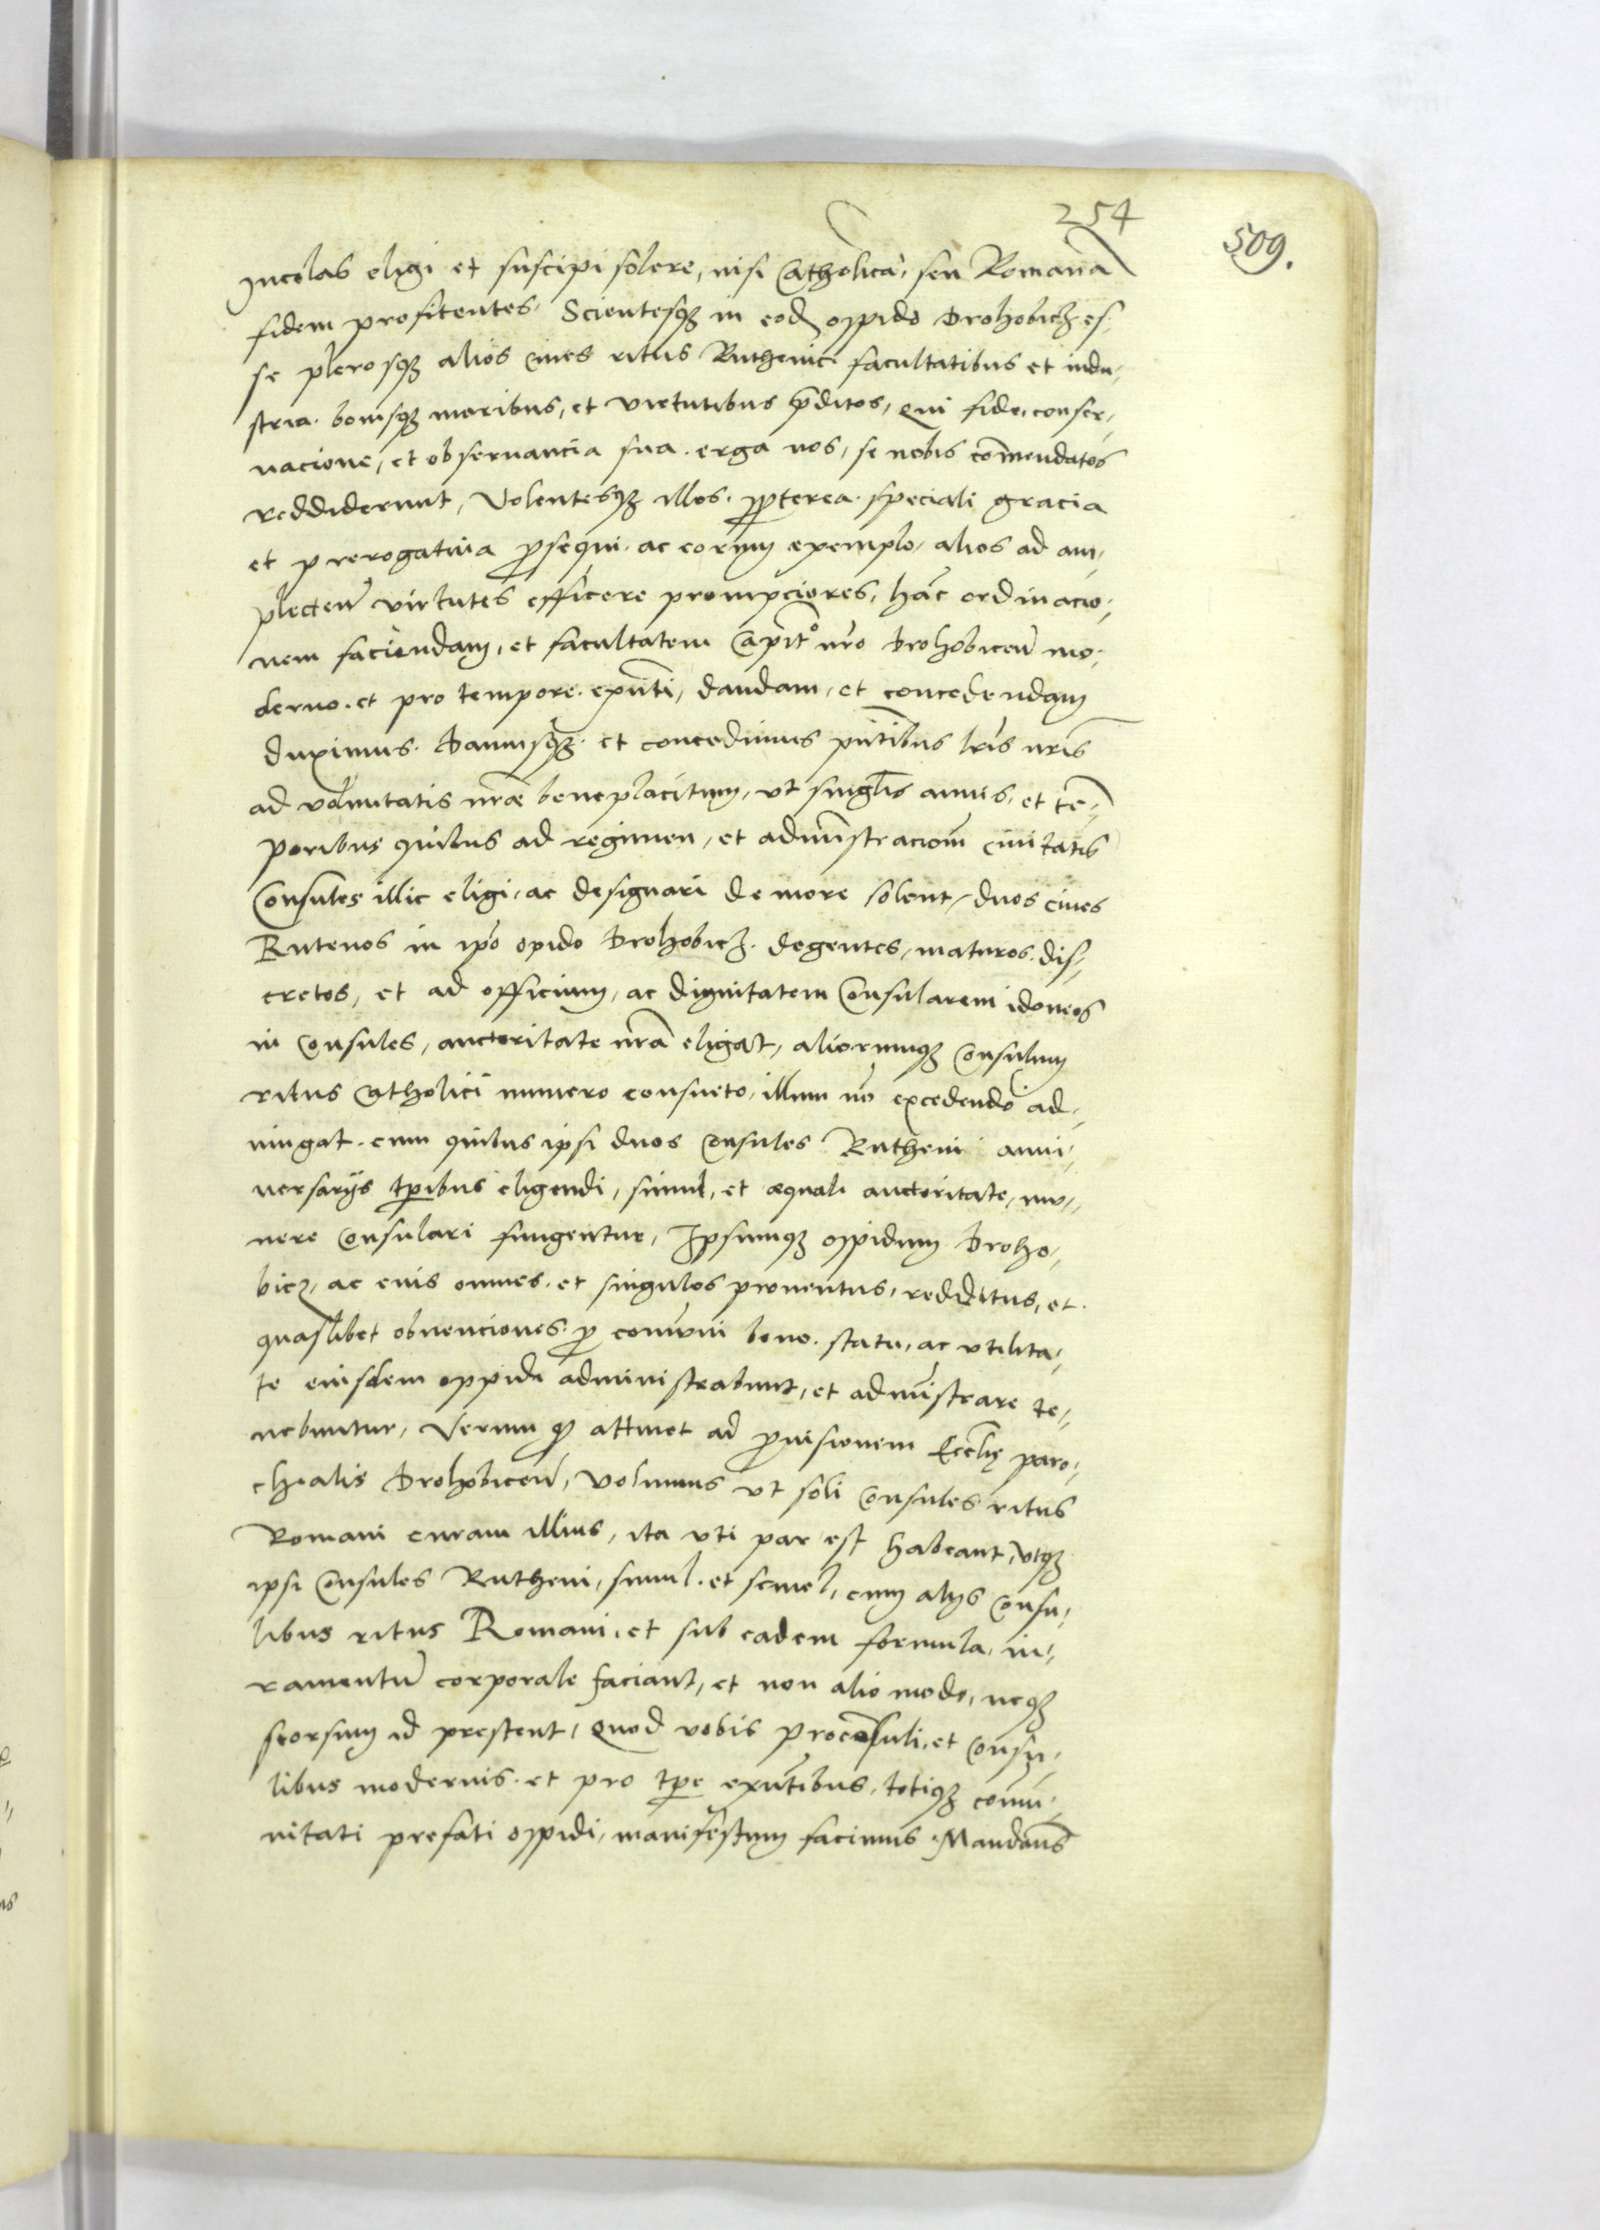 254
509.
Incolas eligi et suscipi solere, nisi Catholicã, seu Romanã
fidem profitentes. Scientesq3 in eod oppido Drohobicz es-
se plerosq3 alios ciues ritus Ruthenici facultatibus et indu-
stria. bonisq3 moribus, et virtutibus p̃ditos, qui fide, conser-
uacione, et obseruancia sua. erga nos, se nobis cõmendatos
reddiderunt, Volentesq3 illos. ꝓpterea. speciali gracia
et prerogatiua ꝓsequi. ac eorum exemplo. alios ad am-
plecten̄ virtutes efficere prompciores, hãc ordinacio-
nem faciendam, et facultatem Capit° nr̃o Drohobicen̄ mo-
derno. et pro tempore. exñti, dandam, et concedendam
duximus. Damusq3. et concedimus pñtibus lr̃is nr̃is
ad voluntatis nr̃æ beneplacitum, vt singlis annis, et tẽ-
poribus quibus ad regimen, et adm̃istraciom̃ ciuitatis
Consules illic eligi, ac designari de more solent, duos ciues
Rutenos in ip̃o opido Drohobicz. degentes, maturos. dis-
cretos, et ad officium, ac dignitatem Consularem idoneos
in Consules, auctoritate nr̃a eligat, aliorumq3 Consulum
ritus Catholici numero consueto, illum nõ excedendo ad-
iungat. cum quibus ipsi duos Consules Rutheni anni-
uersarijs tp̃ribus eligendi, simul, et æquali auctoritate, mu-
nere Consulari fungentur, Ipsumq3 oppidum Droho-
bicz, ac eius omnes. et singulos prouentus, redditus, et.
quaslibet obuenciones. ꝓ cõmuni bono. statu, ac vtilita-
te eiusdem oppidi administrabunt, et adm̃istrare te-
nebuntur, Verum qȝ attinet ad ꝓuisionem Eccl̃ię paro-
chialis Drohobicen̄, Volumus vt soli Consules ritus
Romani curam illius, ita vti par est habeant, vtq3
ipsi Consules Rutheni, simul. et semel, cum alijs Consu-
libus ritus Romani, et sub eadem formula, iu-
ramentũ corporale faciant, et non alio modo, neq3
seorsum id prestent, Quod vobis Procõsuli, et Consu-
libus modernis. et pro tp̃re exñtibus, totiq3 comu-
nitati prefati oppidi, manifestum facimus. Mandañs